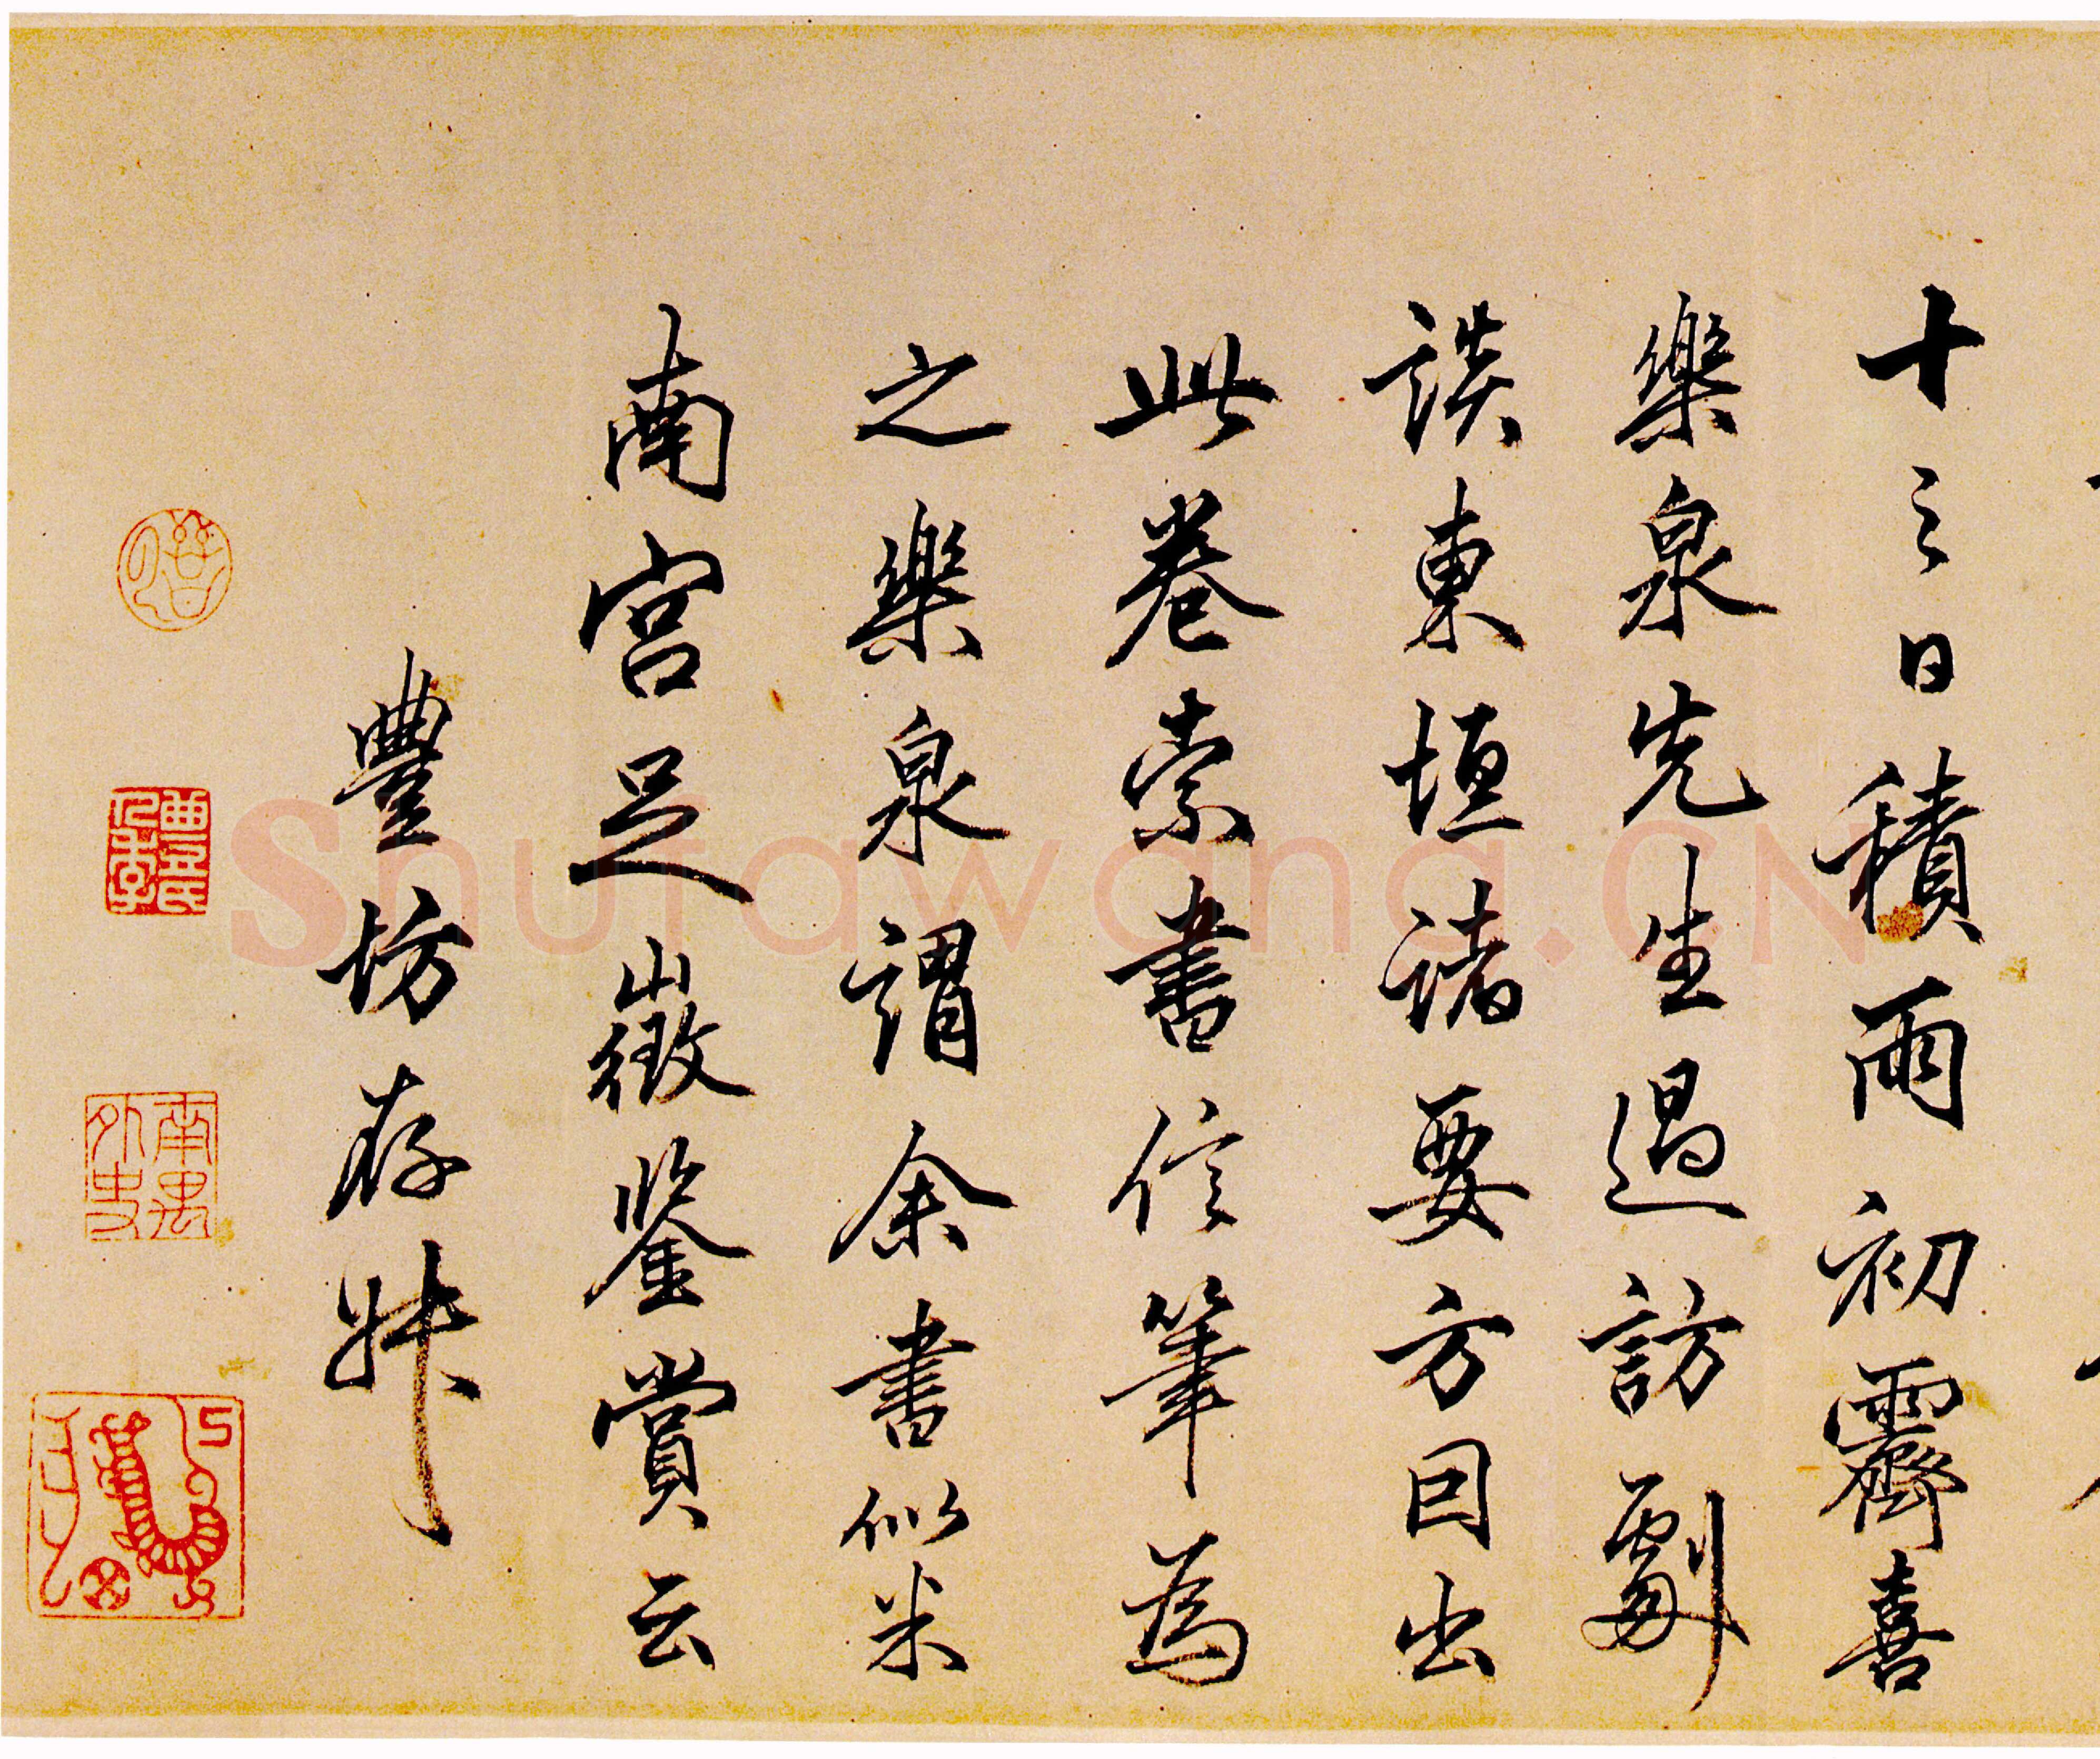 十二日積雨初霽喜
樂泉先生過訪劇
談東垣諸要方因出
此卷索書信筆為
之樂泉謂余書似米
南宮足徵鑒賞云
豐坊存叔
豐氏人季
南禺外史
Shufawang.CN